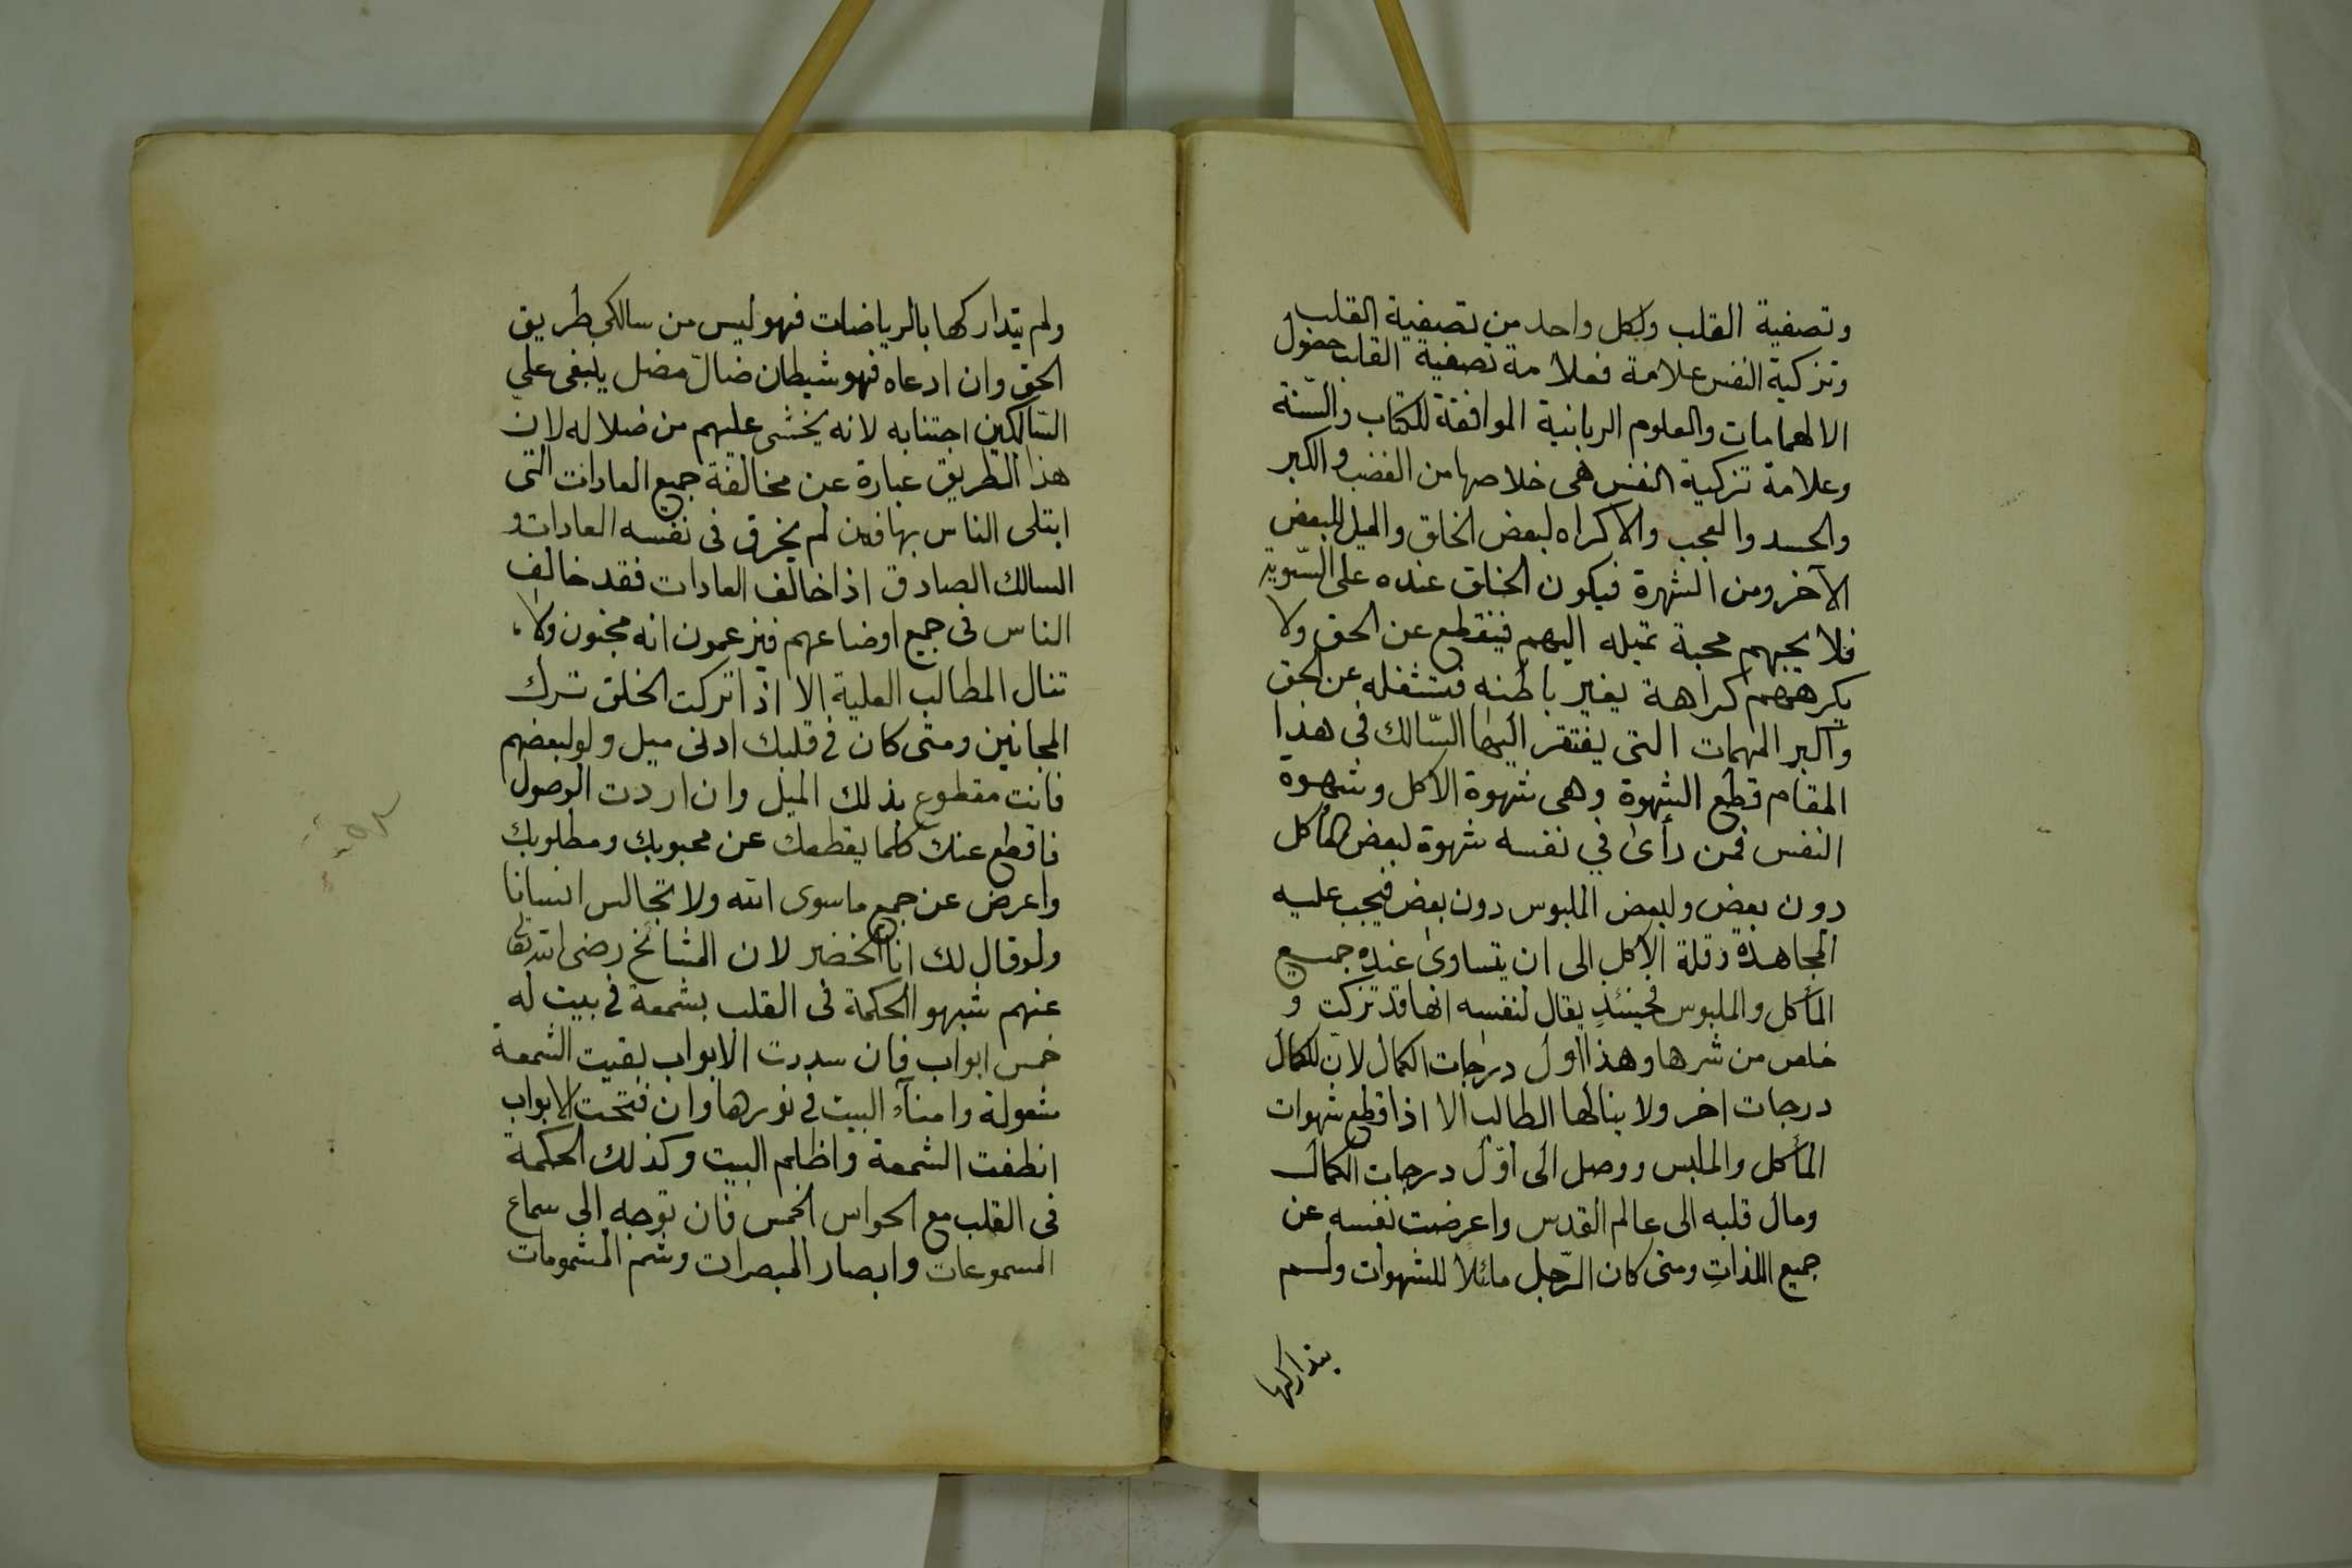 وتصفية القلب ولكل واحد من تصفية القلب
وتزكية النفس علامة فعلامة تصفية القلب حصول
الالهامات والعلوم الربانية الموافقة للكتاب والسّنة
وعلامة تزكية النفس هى خلاصها من الغضب والكبر
والحسد والعجب والاكراه لبعض الخلق والميل للبعض
الآخر ومن الشهرة فيكون الخلق عنده على السّوية
فلا يحبهم محبة تميله اليهم فينقطع عن الحق ولا
يكرههم كراهة يغير باطنه فتشغله عن الحق
واكبر المهمات التى يفتقر اليها السّالك فى هذا
المقام قطع الشهوة وهى شهوة الاكل وشهوة
النفس فمن رأى في نفسه شهوة لبعض المأكل
دون بعض ولبعض الملبوس دون بعض فيجب عليه
المجاهدة وقلة الاكل الى ان يتساوى عنده جميع
المأكل والملبوس فحينئذٍ يقال لنفسه انها قد تزكت و
خلص من شرها وهذا اول درجات الكمال لان للكمال
درجات اخر ولا ينالها الطالب الا اذا قطع شهوات
المأكل والملبس ووصل الى اوّل درجات الكمال
ومال قلبه الى عالم القدس واعرضت نفسه عن
جميع اللذاتِ ومتى كان الرّجل مائلاً للشهوات ولم
يتداركها
ولم يتداركها بالرياضات فهو ليس من سالكى طريق
الحق وان ادعاه فهو شيطان ضالّ مضل ينبغى على
السّالكين اجتنابه لانه يخشى عليهم من ضلاله لان
هذا الطريق عبارة عن مخالفة جميع العادات التى
ابتلى الناس بها فمن لم يخرق فى نفسه العادات و
السالك الصادق اذا خالف العادات فقد خالف
الناس فى جميع اوضاعهم فيزعمون انه مجنون ولا
تنال المطالب العلية الا اذا تركت الخلق ترك
المجانين ومتى كان فى قلبك ادنى ميل ولو لبعضهم
فانت مقطوع بذلك الميل وان اردت الوصول
فاقطع عنك كلما يقطعك عن محبوبك ومطلوبك
واعرض عن جميع ماسوى الله ولا تجالس انسانا
ولو قال لك انا الخضر لان المشائخ رضى الله تعا
عنهم شبهوا الحكمة فى القلب بشمعة فى بيت له
خمس ابواب فان سددت الابواب بقيت الشمعة
شعولة وامنآء البيت فى نورها وان فتحت الابواب
انطفت الشمعة واظلم البيت وكذلك الحكمة
فى القلب مع الحواس الخمس فان توجه الى سماع
المسموعات وابصار المبصرات وشم المشمومات